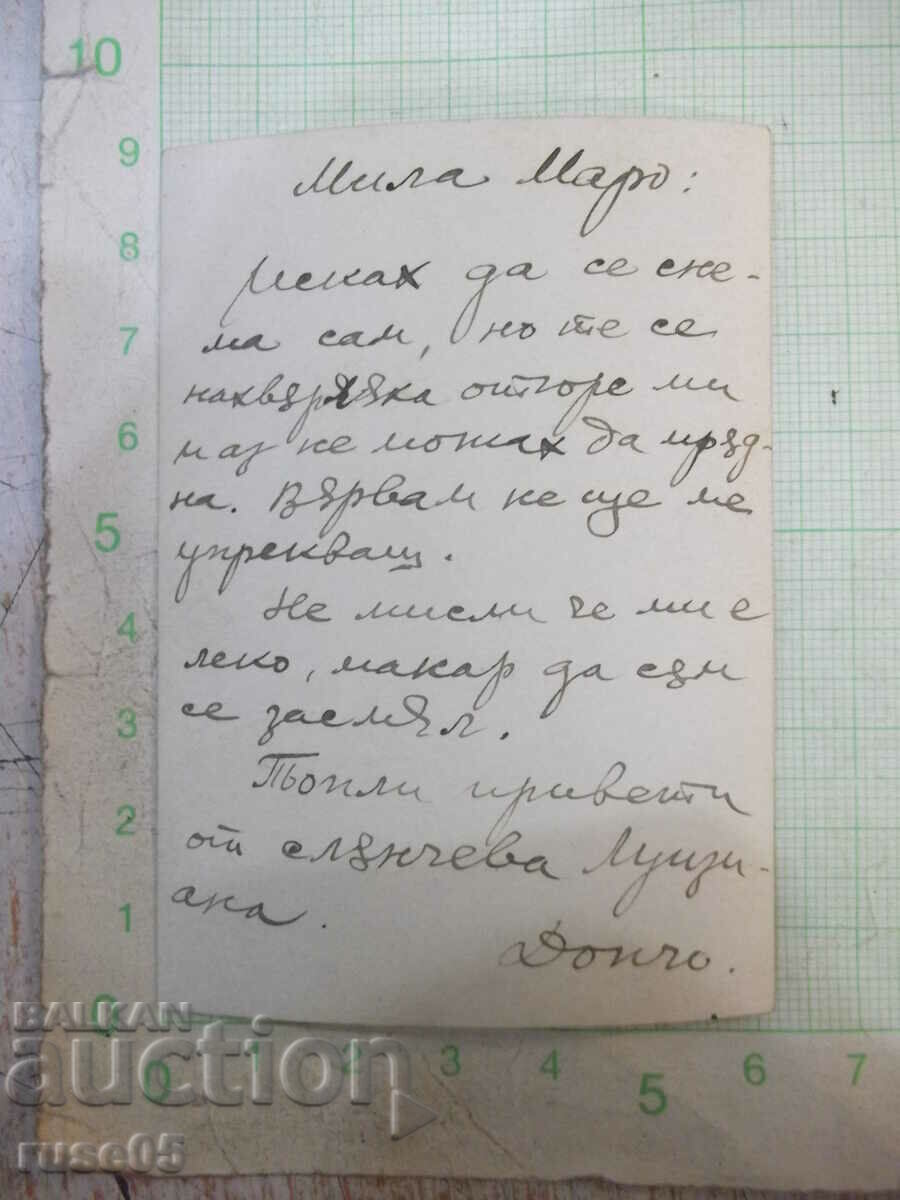 10
9
8
7
6
5
4
3
2
1
0
Мила Маро:
Исках да се сне-
ма сам, но те се
нахвърляха отгоре ми
и аз не можах да пръд-
на. Вървам не ще ме
упрекваш.
Не мисли че ми е
леко, макар да съм
се засмял.
Топли привети
от слънчева Луизи-
ана.
Дончо.
0 1 2 3 4 5 6 7
BALKAN
auction
ruse05